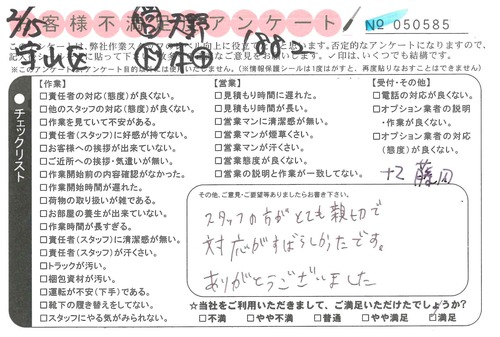 お客様不満足度アンケート
№ 050585
2/15
天野
188-
本田
このアンケートは、弊社作業スタッフのレベル向上に役立て
否定的なアンケートになりますので、
ご意見をお願いします。✓印は、いくつでも結構です。
(※情報保護シールは1度はがすと、再度貼りなおすことはできません)
チェックリスト
【作業】
□責任者の対応(態度)が良くない。
□他のスタッフの対応(態度)が良くない。
□作業を見ていて不安がある。
□責任者(スタッフ)に好感が持てない。
□お客様への挨拶が出来ていない。
□ご近所への挨拶・気遣いが無い。
□作業開始前の内容確認がなかった。
□作業開始時間が遅れた。
□荷物の取り扱いが雑である。
□お部屋の養生が出来ていない。
□作業時間が長すぎる。
□責任者(スタッフ)に清潔感が無い。
□責任者(スタッフ)が汗くさい。
□トラックが汚い。
□梱包資材が汚い。
□運転が不安(下手)である。
□靴下の履き替えをしてない。
□スタッフにやる気がみられない。
【営業】
□見積もり時間に遅れた。
□見積もり時間が長い。
□営業マンに清潔感が無い。
□営業マンが煙草くさい。
□営業マンが汗くさい。
□営業態度が良くない。
□営業の説明と作業が一致してない。
【受付・その他】
□電話の対応が良くない。
□オプション業者の説明
・作業が良くない。
□オプション業者の対応
(態度)が良くない。
その他、ご意見・ご要望等ありましたらお書き下さい。
スタッフの方がとても親切で
対応がすばらしかったです。
ありがとうございました
☆当社をご利用いただきまして、ご満足いただけたでしょうか?
□不満 □やや不満 □普通 □やや満足 ☑満足